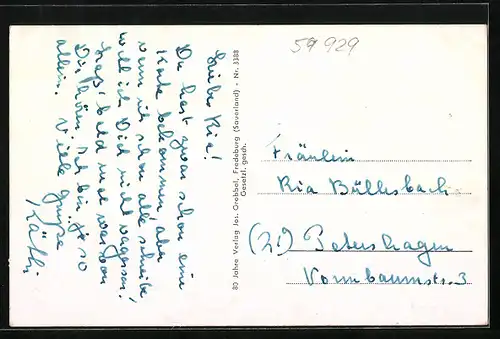 59 929
Liebe Ria!
Du hast zwar schon eine
Karte bekommen, aber
wenn ich schon alle schreibe,
will ich Dich nicht vergessen!
Laß' bald mal was von
Dir hören, ich bin ja so
allein. Viele Grüße
Käthi
80 Jahre Verlag Jos. Grobbel, Fredeburg (Sauerland) - Nr. 3188
Gesetzl. gesch.
Fräulein
Ria Büllesbach
(21) Petershagen
Vornbaumstr. 3